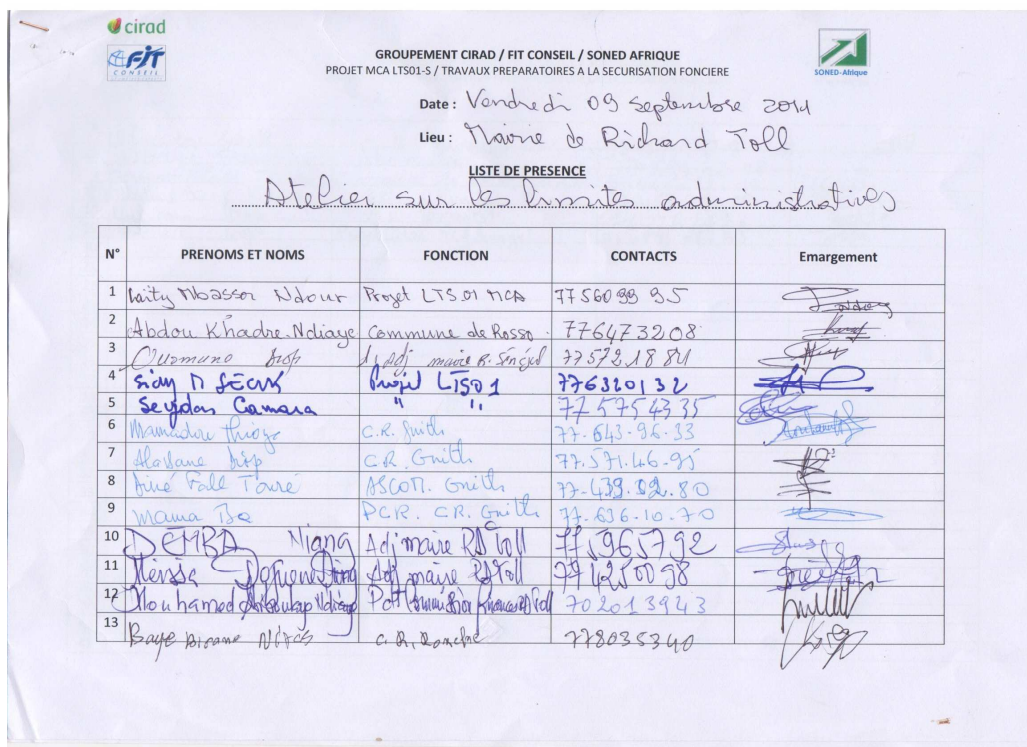 cirad
FIT
CONSEIL
SONED-Afrique
GROUPEMENT CIRAD / FIT CONSEIL / SONED AFRIQUE
PROJET MCA LTS01-S / TRAVAUX PREPARATOIRES A LA SECURISATION FONCIERE
Date : Vendredi 09 Septembre 2011
Lieu : Mairie de Richard Toll
LISTE DE PRESENCE
Atelier sur les limites administratives
N° PRENOMS ET NOMS FONCTION CONTACTS Emargement
1 Laity Mbassor Ndour Projet LTS.01 MCA 77 560 99 95
2 Abdou Khadre Ndiaye Commune de Rosso 776473208
3 Ousmane Diop Adj maire R. Sénégal
4 Projet LTS01 776320132
5 Seydou Camara " " 77 575 43 35
6 Mamadou C.R. Gnith 77.643.96.33
7 Alassane Diop C.R. Gnith 77.571.46.95
8 Fall Touré ASCOM. Gnith 77.439.92.80
9 Mama Ba PCR. CR. Gnith 77.636.10.70
10 DEMBA Niang Adj maire RS Toll 775965792
11 Adj maire RS Toll 774250098
12 Mouhamed Ndiaye Pdt Commission 702013943
13 Baye C.R. 778035340